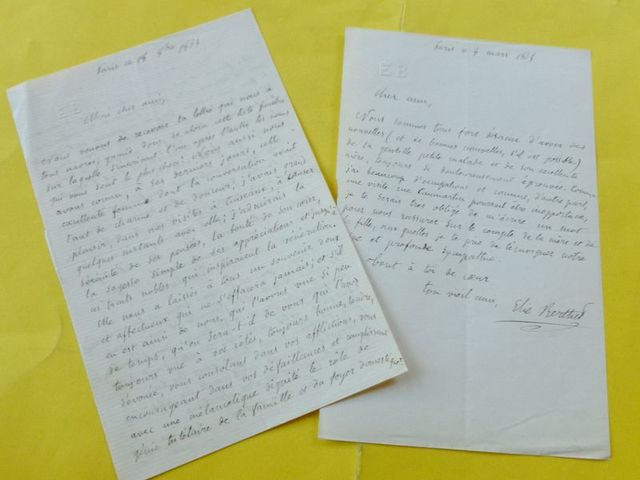 Paris ce 14 9bre
EB
Mon cher ami,
Nous venons de recevoir ta lettre qui nous a
tous navrés; quand donc se clora cette liste funèbre
sur laquelle s'inscrivent l'un après l'autre les noms
qui nous sont le plus chers? Nous aussi nous
avons connu, à ses derniers jours, cette
excellente femme dont la conversation avait
tant de charme et de douceur; j'avais grand
plaisir, dans nos visites à à passer
quelques instants avec elle; j'admirais la
sérénité de ses pensées, la bonté de son cœur,
la sagesse simple de ses appréciations et
ses traits nobles qui inspiraient la vénération.
Elle nous a laissé à tous un souvenir doux
et affectueux qui ne s'effacera jamais; et s'il
en est ainsi de nous, qui l'avons vue si peu
de temps, qu'en sera-t-il de vous qui l'avez
toujours vue à vos côtés, toujours bonne, tendre,
dévouée, vous consolant dans vos afflictions, vous
encourageant dans vos défaillances et remplissant
avec une mélancolique dignité le rôle de
génie tutélaire de la famille et du foyer domestique.
Paris ce 4 mars
EB
Cher ami,
Nous sommes tous fort désireux d'avoir des
nouvelles (et de bonnes nouvelles, s'il est possible)
de la gentille petite malade et de son excellente
mère, toujours si douloureusement éprouvée. Comme
j'ai beaucoup d'occupations et comme, d'autre part,
une visite rue Caumartin pourrait être inopportune,
je te serais très obligé de m'écrire un mot
pour nous rassurer sur le compte de la mère et de
la fille, auxquelles je te prie de témoigner notre
et profonde sympathie.
tout à toi de cœur
ton vieil ami,
Elie Berthet